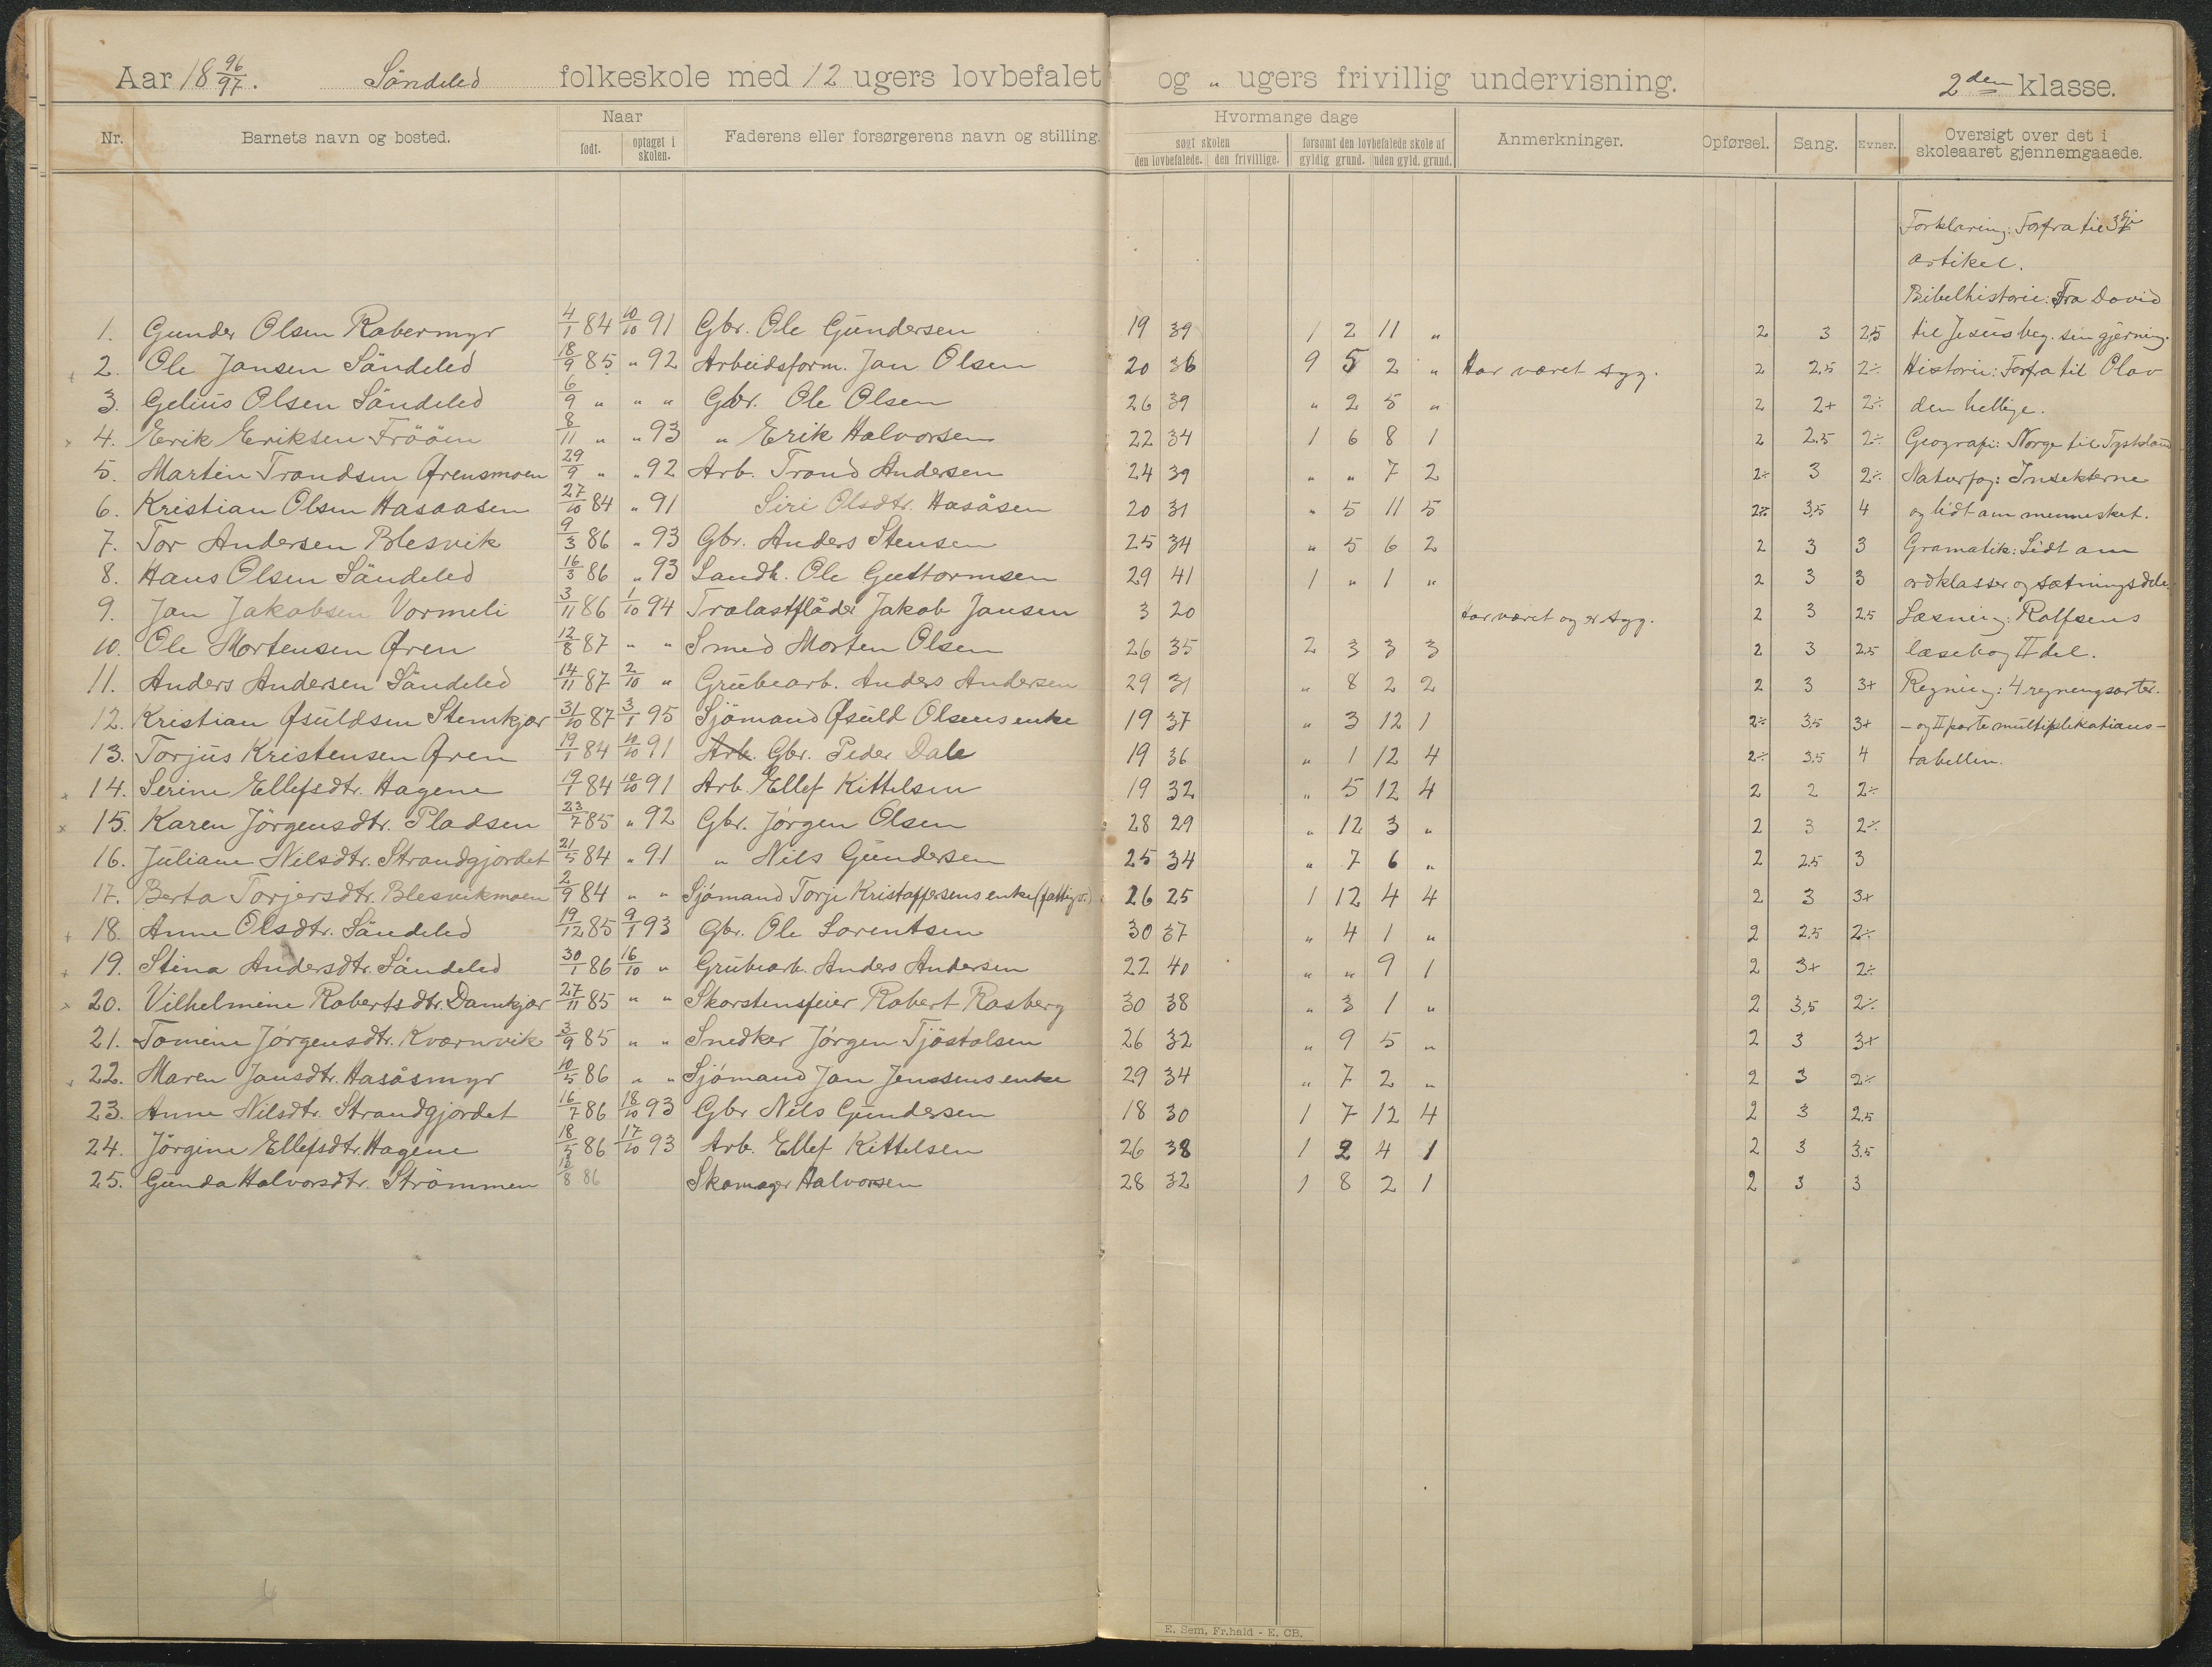 Aar 18 96/97. Söndeled folkeskole med 12 ugers lovbefalet og " ugers frivillig undervisning. 2den klasse.
Nr. Barnets navn og bosted. Naar født. optaget i skolen. Faderens eller forsørgerens navn og stilling. Hvormange dage søgt skolen den lovbefalede. den frivillige. forsømt den lovbefalede skole af gyldig grund. uden gyld. grund. Anmerkninger. Opførsel. Sang. Evner. Oversigt over det i skoleaaret gjennemgaaede.
Forklaring: Forfra til 3die
artikel.
Bibelhistorie: Fra David
1. Gunder Olsen Rabermyr 4/1 84 10/10 91 Gbr. Ole Gundersen 19 39 1 2 11 " 2 3 2,5 til Jesus beg. sin gjerning.
2. Ole Jansen Söndeled 18/9 85 " 92 Arbeidsform. Jan Olsen 20 36 9 5 2 " Har været syg. 2 2,5 2÷ Historie: Forfra til Olav
3. Gelius Olsen Söndeled 6/9 " " " Gbr. Ole Olsen 26 39 " 2 5 " 2 2+ 2÷ den hellige.
4. Erik Eriksen Frööm 8/11 " " 93 " Erik Halvorsen 22 34 1 6 8 1 2 2,5 2÷ Geografi: Norge til Tyskland
5. Martin Trondsen Örensmoen 29/9 " " 92 Arb. Trond Andersen 24 39 " " 7 2 2÷ 3 2÷ Naturfag: Insekterne
6. Kristian Olsen Hasaasen 27/10 84 " 91 Siri Olsdtr. Hasåsen 20 31 " 5 11 5 2÷ 3,5 4 og lidt om mennesket.
7. Tor Andersen Blesvik 9/3 86 " 93 Gbr. Anders Stensen 25 34 " 5 6 2 2 3 3 Gramatik: Lidt om
8. Hans Olsen Söndeled 16/3 86 " 93 Landh. Ole Guttormsen 29 41 1 " 1 " 2 3 3 ordklasser og sætningsdele.
9. Jan Jakobsen Vormeli 3/11 86 1/10 94 Trælastflåder Jakob Jansen 3 20 Har været og er syg. 2 3 2,5 Læsning: Rolfsens
10. Ole Mortensen Ören 12/8 87 " " Smed Morten Olsen 26 35 2 3 3 3 2 3 2,5 læsebog II del.
11. Anders Andersen Söndeled 14/11 87 2/10 " Grubearb. Anders Andersen 29 31 " 8 2 2 2 3 3+ Regning: 4 regningsarter.
12. Kristian Øsuldsen Stemkjær 31/10 87 3/1 95 Sjömand Øsuld Olsens enke 19 37 " 3 12 1 2÷ 3,5 3+ - og II parte multiplikations-
13. Torjus Kristensen Ören 19/1 84 10/10 91 Arb. Gbr. Peder Dale 19 36 " 1 12 4 2÷ 3,5 4 tabellen.
14. Serine Ellefsdtr. Hagene 19/1 84 10/10 91 Arb. Ellef Kittelsen 19 32 " 5 12 4 2 2 2÷
15. Karen Jörgensdtr. Pladsen 23/7 85 " 92 Gbr. Jörgen Olsen 28 29 " 12 3 " 2 3 2÷
16. Juliane Nilsdtr. Strandgjordet 21/5 84 " 91 " Nils Gundersen 25 34 " 7 6 " 2 2,5 3
17. Berta Torjersdtr. Blesvikmoen 2/9 84 " " Sjömand Torje Kristoffersens enke (fattigv.) 26 25 1 12 4 4 2 3 3+
18. Anne Olsdtr. Söndeled 19/12 85 9/1 93 Gbr. Ole Lorentsen 30 37 " 4 1 " 2 2,5 2÷
19. Stina Andersdtr. Söndeled 30/1 86 16/10 " Grubearb. Anders Andersen 22 40 " " 9 1 2 3+ 2÷
20. Vilhelmine Robertsdtr. Damkjær 27/11 85 " " Skorstensfeier Robert Rosberg 30 38 " 3 1 " 2 3,5 2÷
21. Tomine Jörgensdtr. Kværnvik 3/9 85 " " Snedker Jörgen Tjöstolsen 26 32 " 9 5 " 2 3 3+
22. Maren Jansdtr. Hasåsmyr 10/5 86 " " Sjömand Jan Jenssens enke 29 34 " 7 2 " 2 3 2÷
23. Anne Nilsdtr. Strandgjordet 16/7 86 18/10 93 Gbr Nils Gundersen 18 30 1 7 12 4 2 3 2,5
24. Jörgine Ellefsdtr. Hagene 18/5 86 17/10 93 Arb. Ellef Kittelsen 26 38 1 2 4 1 2 3 3,5
25. Gunda Halvorsdtr. Strömmen 8 86 Skomager Halvorsen 28 32 1 8 2 1 2 3 3
E. Sem, Fr.hald - E. CB.